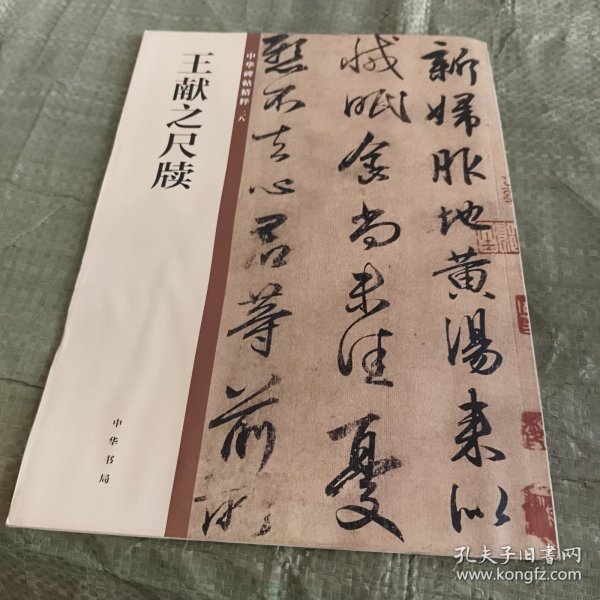 王献之尺牍
中华书局
中华碑帖精粹 二八
新婦服地黄湯来似
减眠食尚未佳憂
懸不去心君等前所
孔夫子旧书网
www.kongfz.com